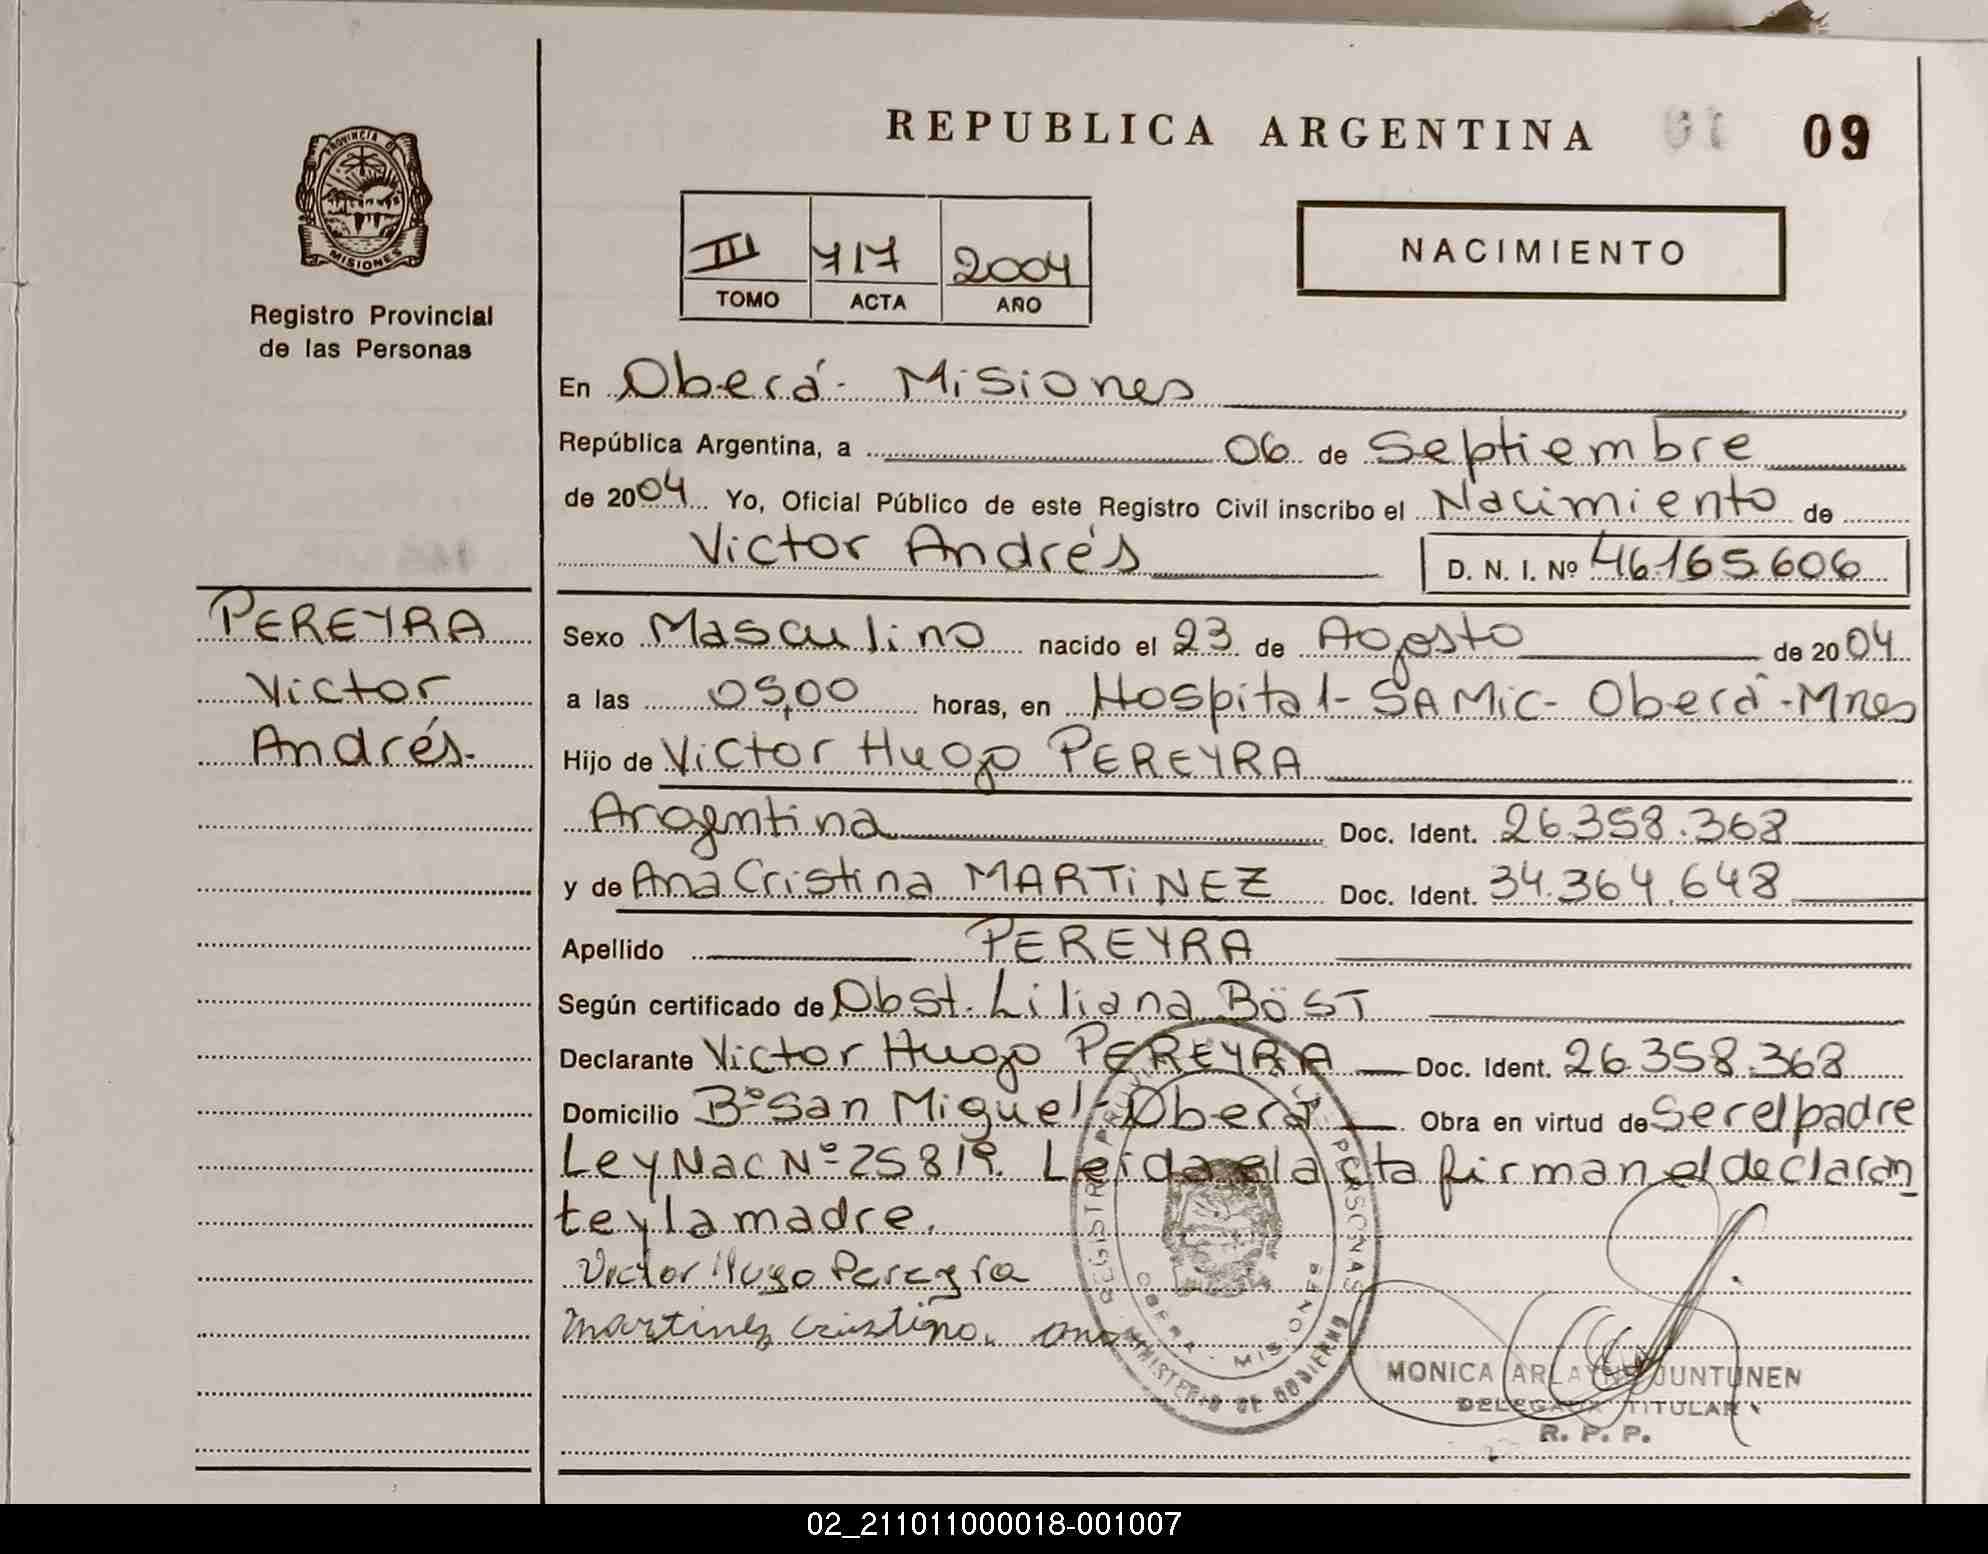 REPUBLICA ARGENTINA 09
PROVINCIA D
MISIONES
Registro Provincial
de las Personas
III 717 2004
TOMO ACTA AÑO
NACIMIENTO
En Oberá - Misiones
República Argentina, a 06 de Septiembre
de 2004 Yo, Oficial Público de este Registro Civil inscribo el Nacimiento de
Victor Andrés D. N. I. Nº 46.165.606
PEREYRA
Victor
Andrés.-
Sexo Masculino nacido el 23 de Agosto de 2004
a las 05,00 horas, en Hospital - SAMic - Oberá - Mnes
Hijo de Victor Hugo PEREYRA
Argentina Doc. Ident. 26.358.368
y de Ana Cristina MARTiNEZ Doc. Ident. 34.364.648
Apellido PEREYRA
Según certificado de Obst. Liliana BöST
Declarante Victor Hugo PEREYRA Doc. Ident. 26.358.368
Domicilio Bº San Miguel - Oberá Obra en virtud de ser el padre
Ley Nac Nº 25819. Leida el acta firman el declaran
te y la madre.
Victor Hugo Pereyra
Martinez Cristina. ana
REGISTRO PERSONAS
MINISTERIO DE GOBIERNO
OBERA - MISIONES
MONICA ARLAYNE JUNTUNEN
DELEGADA TITULAR
R. P. P.
02_211011000018-001007